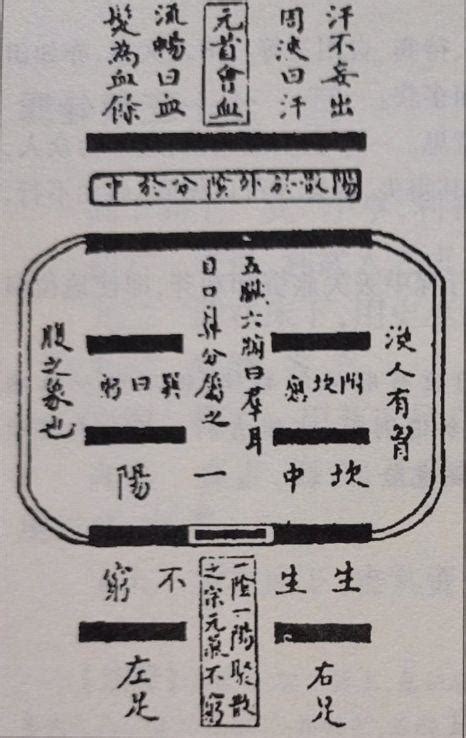 汗不妄出
周浹曰汗
元首會血
流暢曰血
髮為血餘
陽散於外陰分於中
渙人有胷
五臟六腑曰羣耳
目口鼻分屬之
腹之象也
坎無
巽曰躬
坎中一陽
生生不窮
一陰一陽聚散
之宗元氣不窮
右足
左足